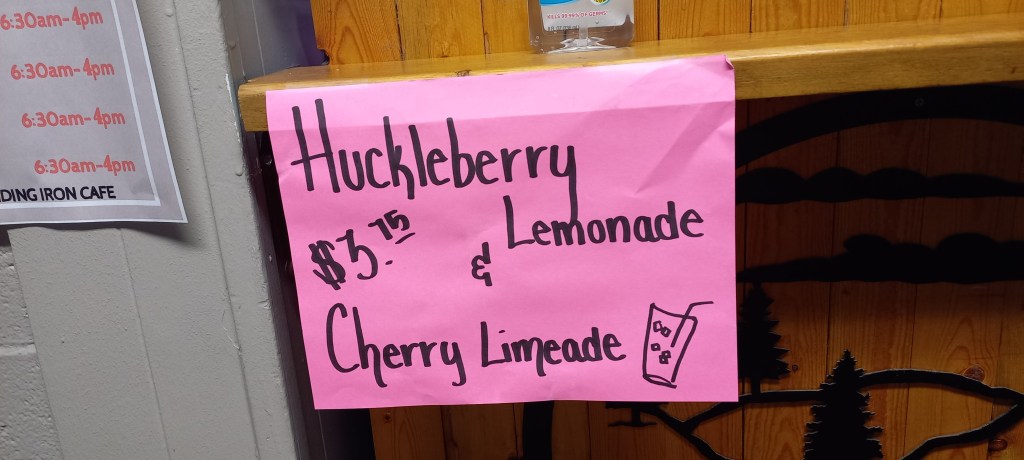 6:30am-4pm
6:30am-4pm
6:30am-4pm
6:30am-4pm
DING IRON CAFE
KILLS 99.99% OF GERMS
Huckleberry
Lemonade
$3.75
&
Cherry Limeade